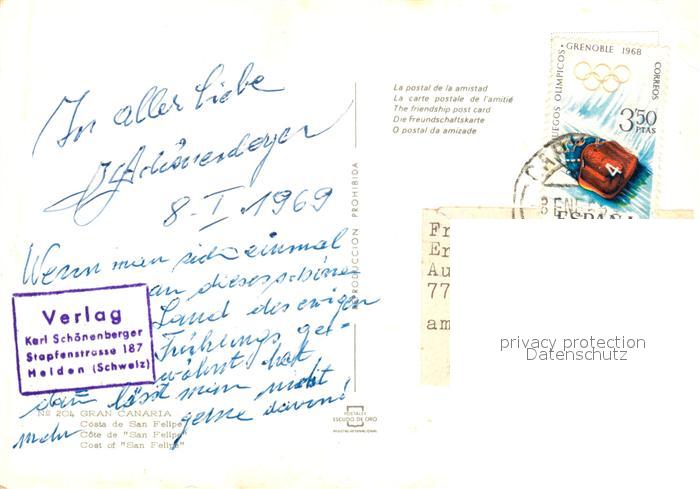 In aller liebe
Schönenberger
8-I-1969
Wenn man sich einmal
an dieses schöne
Land des ewigen
Frühlings ge-
wöhnt hat
dann lässt man nicht
mehr gerne davon!
Verlag
Karl Schönenberger
Stapfenstrasse 187
Heiden (Schweiz)
Nº 204 GRAN CANARIA
Costa de San Felipe
Côte de "San Felipe"
Cost of "San Felipe"
PROHIBIDA
POSTALES
ESCUDO DE ORO
La postal de la amistad
La carte postale de l'amitié
The friendship post card
Die Freundschaftskarte
O postal da amizade
GRENOBLE 1968
JUEGOS OLIMPICOS
CORREOS
3'50
PTAS
4
8 ENE
ESPAÑA
Fr
Er
Au
77
am
privacy protection
Datenschutz